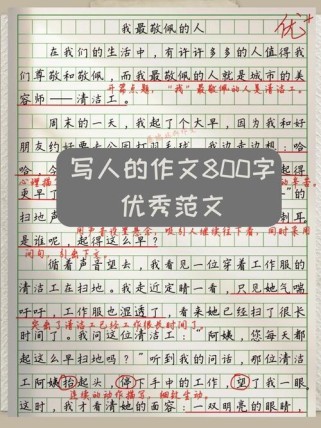 我最敬佩的人
优+
在我们的生活中，有许许多多的人值得我
们尊敬和敬佩，而我最敬佩的人就是城市的美
开篇点题，“我”最敬佩的人是清洁工。
容师——清洁工。
周末的一天，我起了个大早，因为我和好
朋友约好要去公园打羽毛球，我边走边想：哈
哈，今
写人的作文800字
优秀范文
心理描
更早了
的扫地声
刺耳，
是谁呢，起得这么早？
用声音设置悬念，吸引人继续往下看，同时采用
问句，引出下文。
循着声音望去，我看见一位穿着工作服的
清洁工在扫地。我走近定睛一看，只见她气喘
吁吁，工作服也湿透了，看来她已经扫了很长
突出了清洁工已经工作很长时间了。
时间了。我问这位清洁工：“阿姨，您每天都
起这么早扫地吗？”听到我的问话，那位清洁
工阿姨抬起头，停下手中的工作，望了我一眼
连续的动作描写，细致生动。
这时，我才看清她的面容：一双明亮的眼睛，